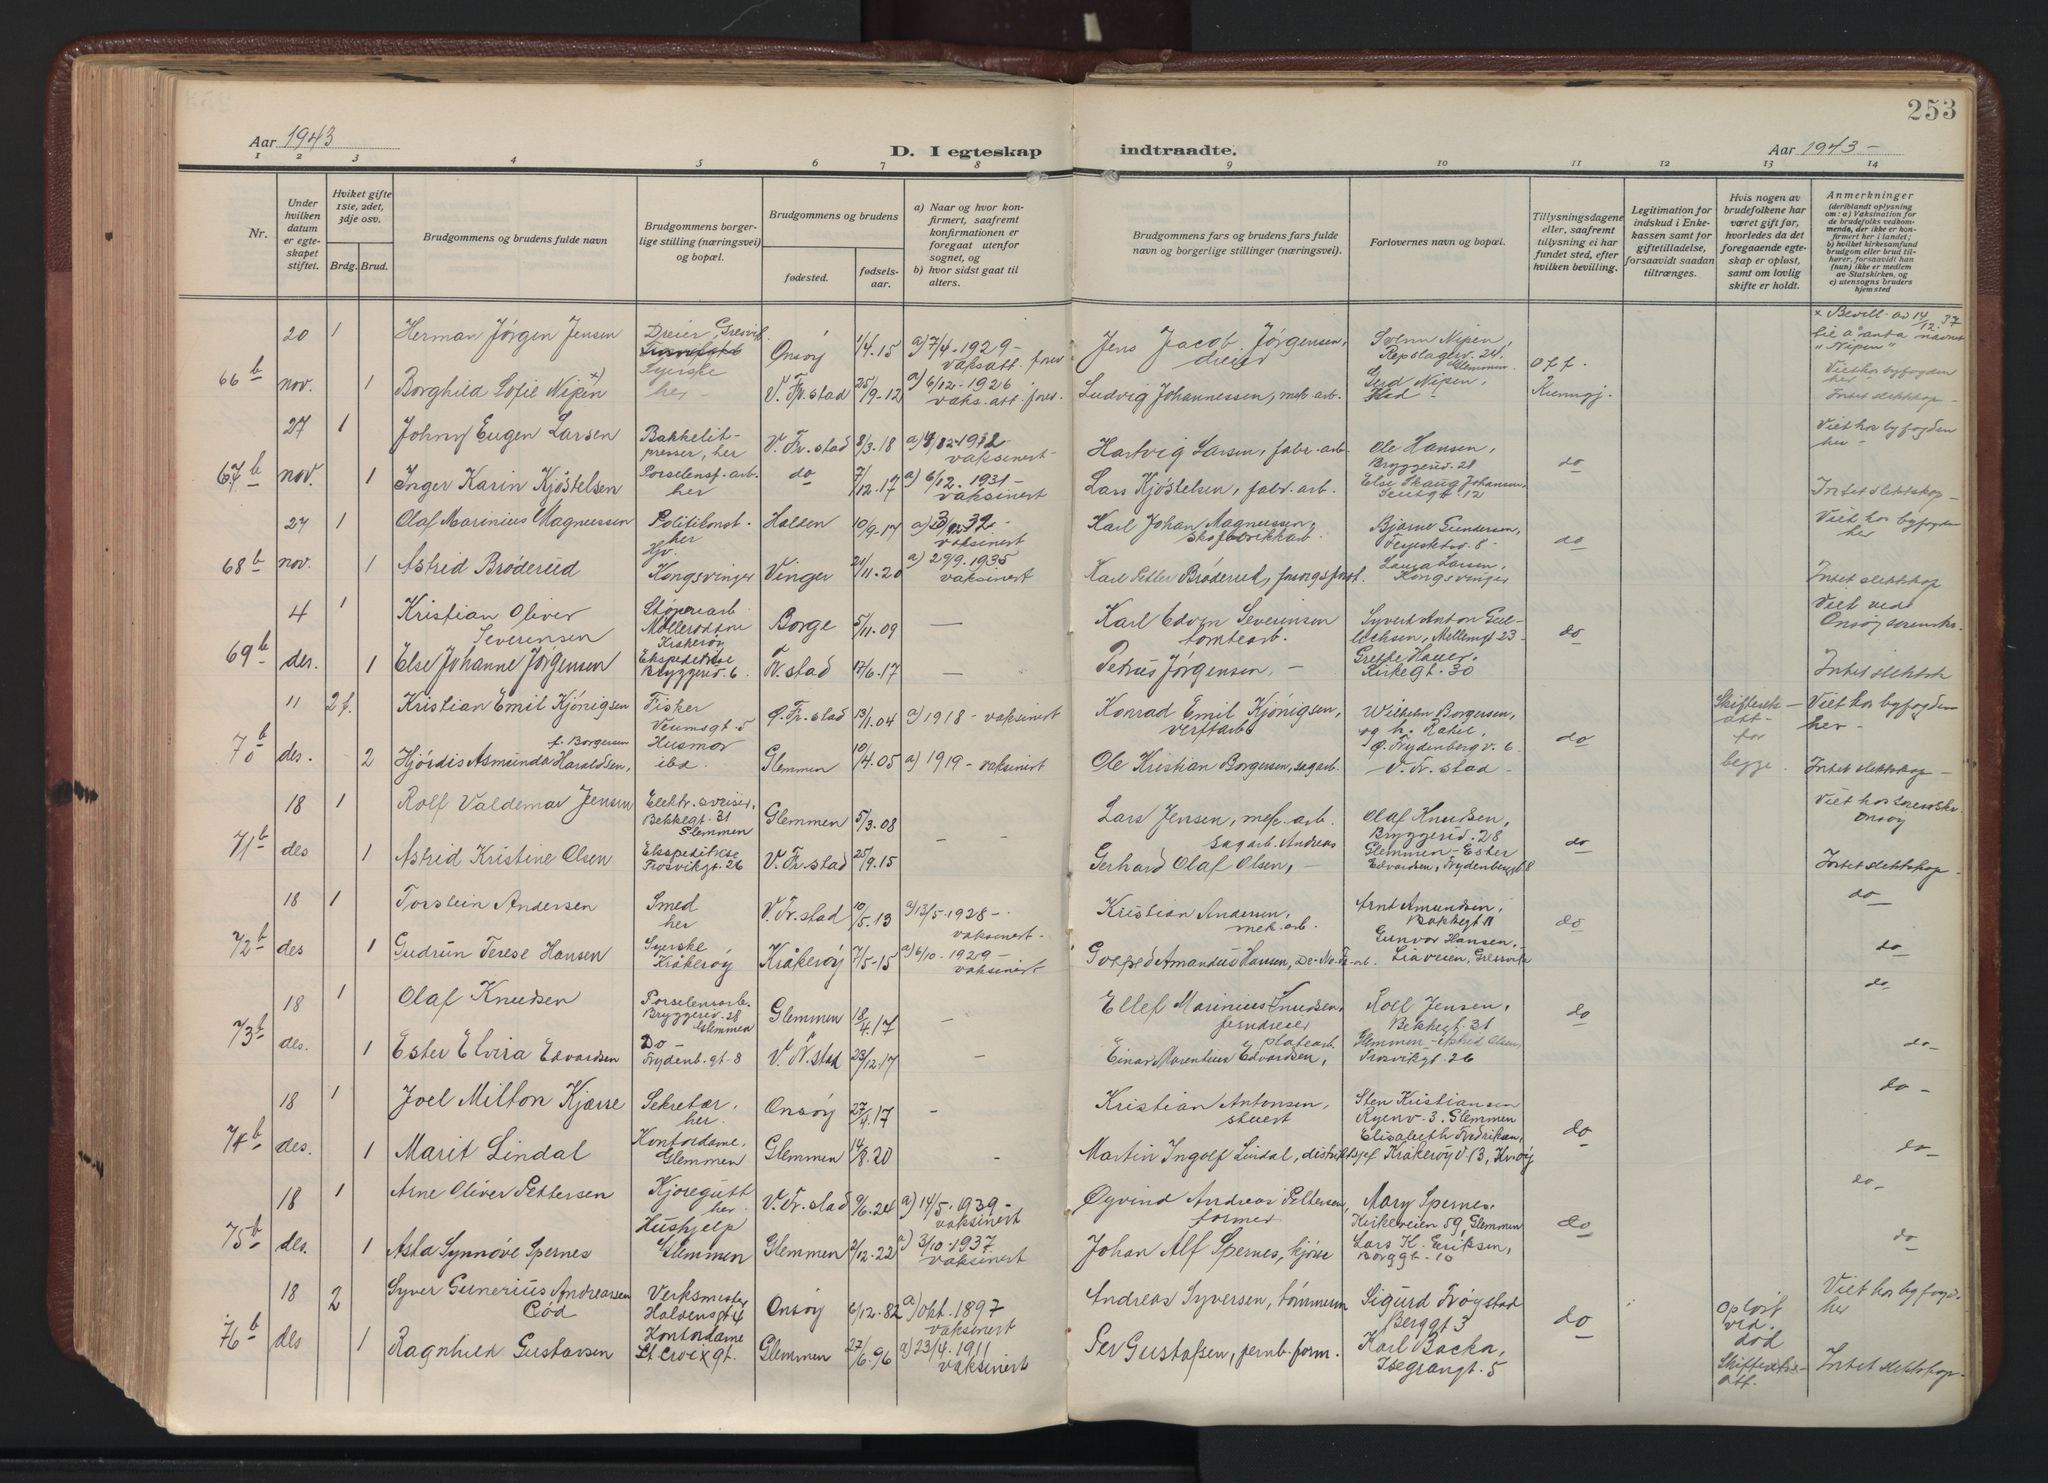 253
Aar 1943
D. I egteskap
indtraadte.
Aar 1943 -
1 2 3 4 5 6 7 8 9 10 11 12 13 14
Nr.
Under hvilken datum er egteskapet stiftet.
Hviket gifte 1ste, 2det, 3dje osv.
Brdg. Brud.
Brudgommens og brudens fulde navn
Brudgommens borgerlige stilling (næringsvei) og bopæl.
Brudgommens og brudens
fødested.
fødselsaar.
a) Naar og hvor konfirmert, saafremt konfirmationen er foregaat utenfor sognet, og
b) hvor sidst gaat til alters.
Brudgommens fars og brudens fars fulde navn og borgerlige stillinger (næringsvei).
Forlovernes navn og bopæl.
Tillysningsdagene eller, saafremt tillysning ei har fundet sted, efter hvilken bevilling.
Legitimation for indskud i Enkekassen samt for giftetilladelse, forsaavidt saadan tiltrænges.
Hvis nogen av brudefolkene har været gift før, hvorledes da det foregaaende egteskap er opløst, samt om lovlig skifte er holdt.
Anmerkninger
(deriblandt oplysning om: a) Vaksination for de brudefolks vedkommende, der ikke er konfirmert her i landet; b) hvilket kirkesamfund brudgom eller brud tilhører, forsaavidt han (hun) ikke er medlem av Statskirken, og c) utensogns bruders hjemsted
20 1 Herman Jørgen Jensen Dreier, Gresvik Onsøy 1/4.15 a) 7/4.1929 - vaksatt. forev. Jens Jacob Jørgensen, dreier Solnn Nipen, Repslagerv. 24, Glemmen × Bevill. av 14/12.37 til å anta navnet "Nipen"
66 b nov. 1 Borghild Sofie Nipen ×) Syerske her - V. Fr.stad 25/9-12 a) 6/12-1926 vaks.att. forev. Ludvig Johannessen, mek. arb. Gerd Nipen, Sted off. Kunngj. Viet hos byfogden her - Intet slektskap -
27 1 Johny Eugen Larsen Bakkelitpresser, her V. Fr.stad 8/3.18 vaksinert - Hartvig Larsen, fabr. arb. Ole Hansen, Bryggeriv. 28 Viet hos byfogden her -
67 b nov. 1 Inger Karin Kjøstelsen Porselensf.arb. her do 7/12.17 a) 6/12.1931 - vaksinert Lars Kjøstelsen, fabr. arb. Else Skaug Johansen, 12 do Intet slektskap -
27 1 Olaf Marinius Magnussen Politikonst. her Halden 10/9-17 vaksinert Karl Johan Magnussen, skofabrikkarb. Bjarne Gundersen, 8 - do Viet hos byfogden her
68 b nov. 1 Astrid Brøderud Hjv. Kongsvinger Vinger 21/11.20 a) 29/9.1935 vaksinert Karl Petter Brøderud, Laura Larsen, Kongsvinger Intet slektskap
4 1 Kristian Oliver Severinsen Støperiarb. Møllerodden Kråkerøy Borge 5/11.09 — Karl Edvin Severinsen tomtearb. Syvert Anton Gulliksen, Mellemgt 23 - do Viet ved Onsøy sorenskr.
69 b des. 1 Else Johanne Jørgensen Ekspeditrise Bryggeriv. 6 Fr.stad 17/6.17 — Petrus Jørgensen, - Grethe Hauer, Kirkegt. 30 Intet slektsk
11 2 f. Kristian Emil Kjönigsen Fisker Veumsgt 5 Ø. Fr.stad 13/1.04 a) 1918 - vaksinert Konrad Emil Kjönigsen, verftarb Wilhelm Borgersen, og h. Rakel, Ø. Frydenberg v. 6 do Skifteretsatt. for Viet hos byfogden her -
70 b des. 2 Hjørdis Asmunda Haraldsen, f. Borgersen Husmor ibd. Glemmen 10/4.05 a) 1919 - vaksinert Ole Kristian Borgersen, sagarb. V. Fr. stad - begge. Intet slektskap -
18 1 Rolf Valdemar Jensen Elektr. sveiser, Bekkegt. 31 Glemmen Glemmen 5/3.08 - Lars Jensen, mek. arb. Olaf Knudsen, Bryggeriv. 28 do Viet hos sorenskr. Onsøy
71 b des 1 Astrid Kristine Olsen Ekspeditrise Trosvikgt. 26 V. Fr.stad 25/9.15 - Gerhard Olaf Olsen, - sagarb. Andreas Glemmen - Ester Edvardsen, Frydenberg 8 Intet slektskap -
18 1 Torstein Andersen Smed her V. Fr.stad 10/5.13 a) 13/5-1928 -. vaksinert - Kristian Andersen, mek. arb. Arnt Amundsen, Bakkegt 11 do do
72 b des 1 Gudrun Terese Hansen Syerske Kråkerøy Kråkerøy 7/5-15 a) 6/10.1929 - vaksinert Amandus Hansen, Gunvor Hansen, Liaveien, Gressvik do
18 1 Olaf Knudsen Porselensarb. Bryggeriv. 28 Glemmen Glemmen 18/4.17 - Ellef Marinius Knudsen, jerndreier Rolf Jensen, Bekkegt. 31 do do
73 b des. 1 Ester Elvira Edvardsen Do - Frydenb. gt. 8 V. Fr.stad 23/12.17 - Einar Marentius Edvardsen, platearb. Glemmen - Astrid Olsen, Trosvikgt. 26 do -
18 1 Joel Milton Kjærre Sekretær, her. Onsøy 27/4.17 - Kristian Antonsen, stuert Sten Kristiansen Ryenv. 3. Glemmen do do -
74 b des. 1 Marit Lindal Kontordame, Glemmen Glemmen 14/8.20 - Martin Ingolf Lindal, Elisabeth Fredriksen, Kråkerøy v. 13, Kr.øy do -
18 1 Arne Oliver Pettersen Kjøregutt her. V. Fr.stad 9/6.24 a) 14/5.1939 - vaksinert Øyvind Andreas Pettersen, former Mary Spernes, Kirkeveien 59 Glemmen do do -
75 b des. 1 Asta Synnøve Spernes Hushjelp Glemmen Glemmen 2/12.22 a) 3/10.1937 vaksinert Johan Alf Spernes, kjøre Lars K. Eriksen, Borggt. 10 do
18 2 Syver Gunerius Andreassen Cöd Verksmester Haldensgt 4 Onsøy 6/12.82 a) okt. 1897 vaksinert Andreas Syversen, tömmerm Sigurd Trøgstad Berggt 3 do Opløst ved død Viet hos byfogd. her
76 b des 1 Ragnhild Gustavsen Kontordame St. Croix gt. Glemmen 27/6.96 a) 23/4.1911 vaksinert Per Gustafsen, jernb. form. Karl Backa, Isegrangt. 5 Skifteretsatt. Intet slektskap.